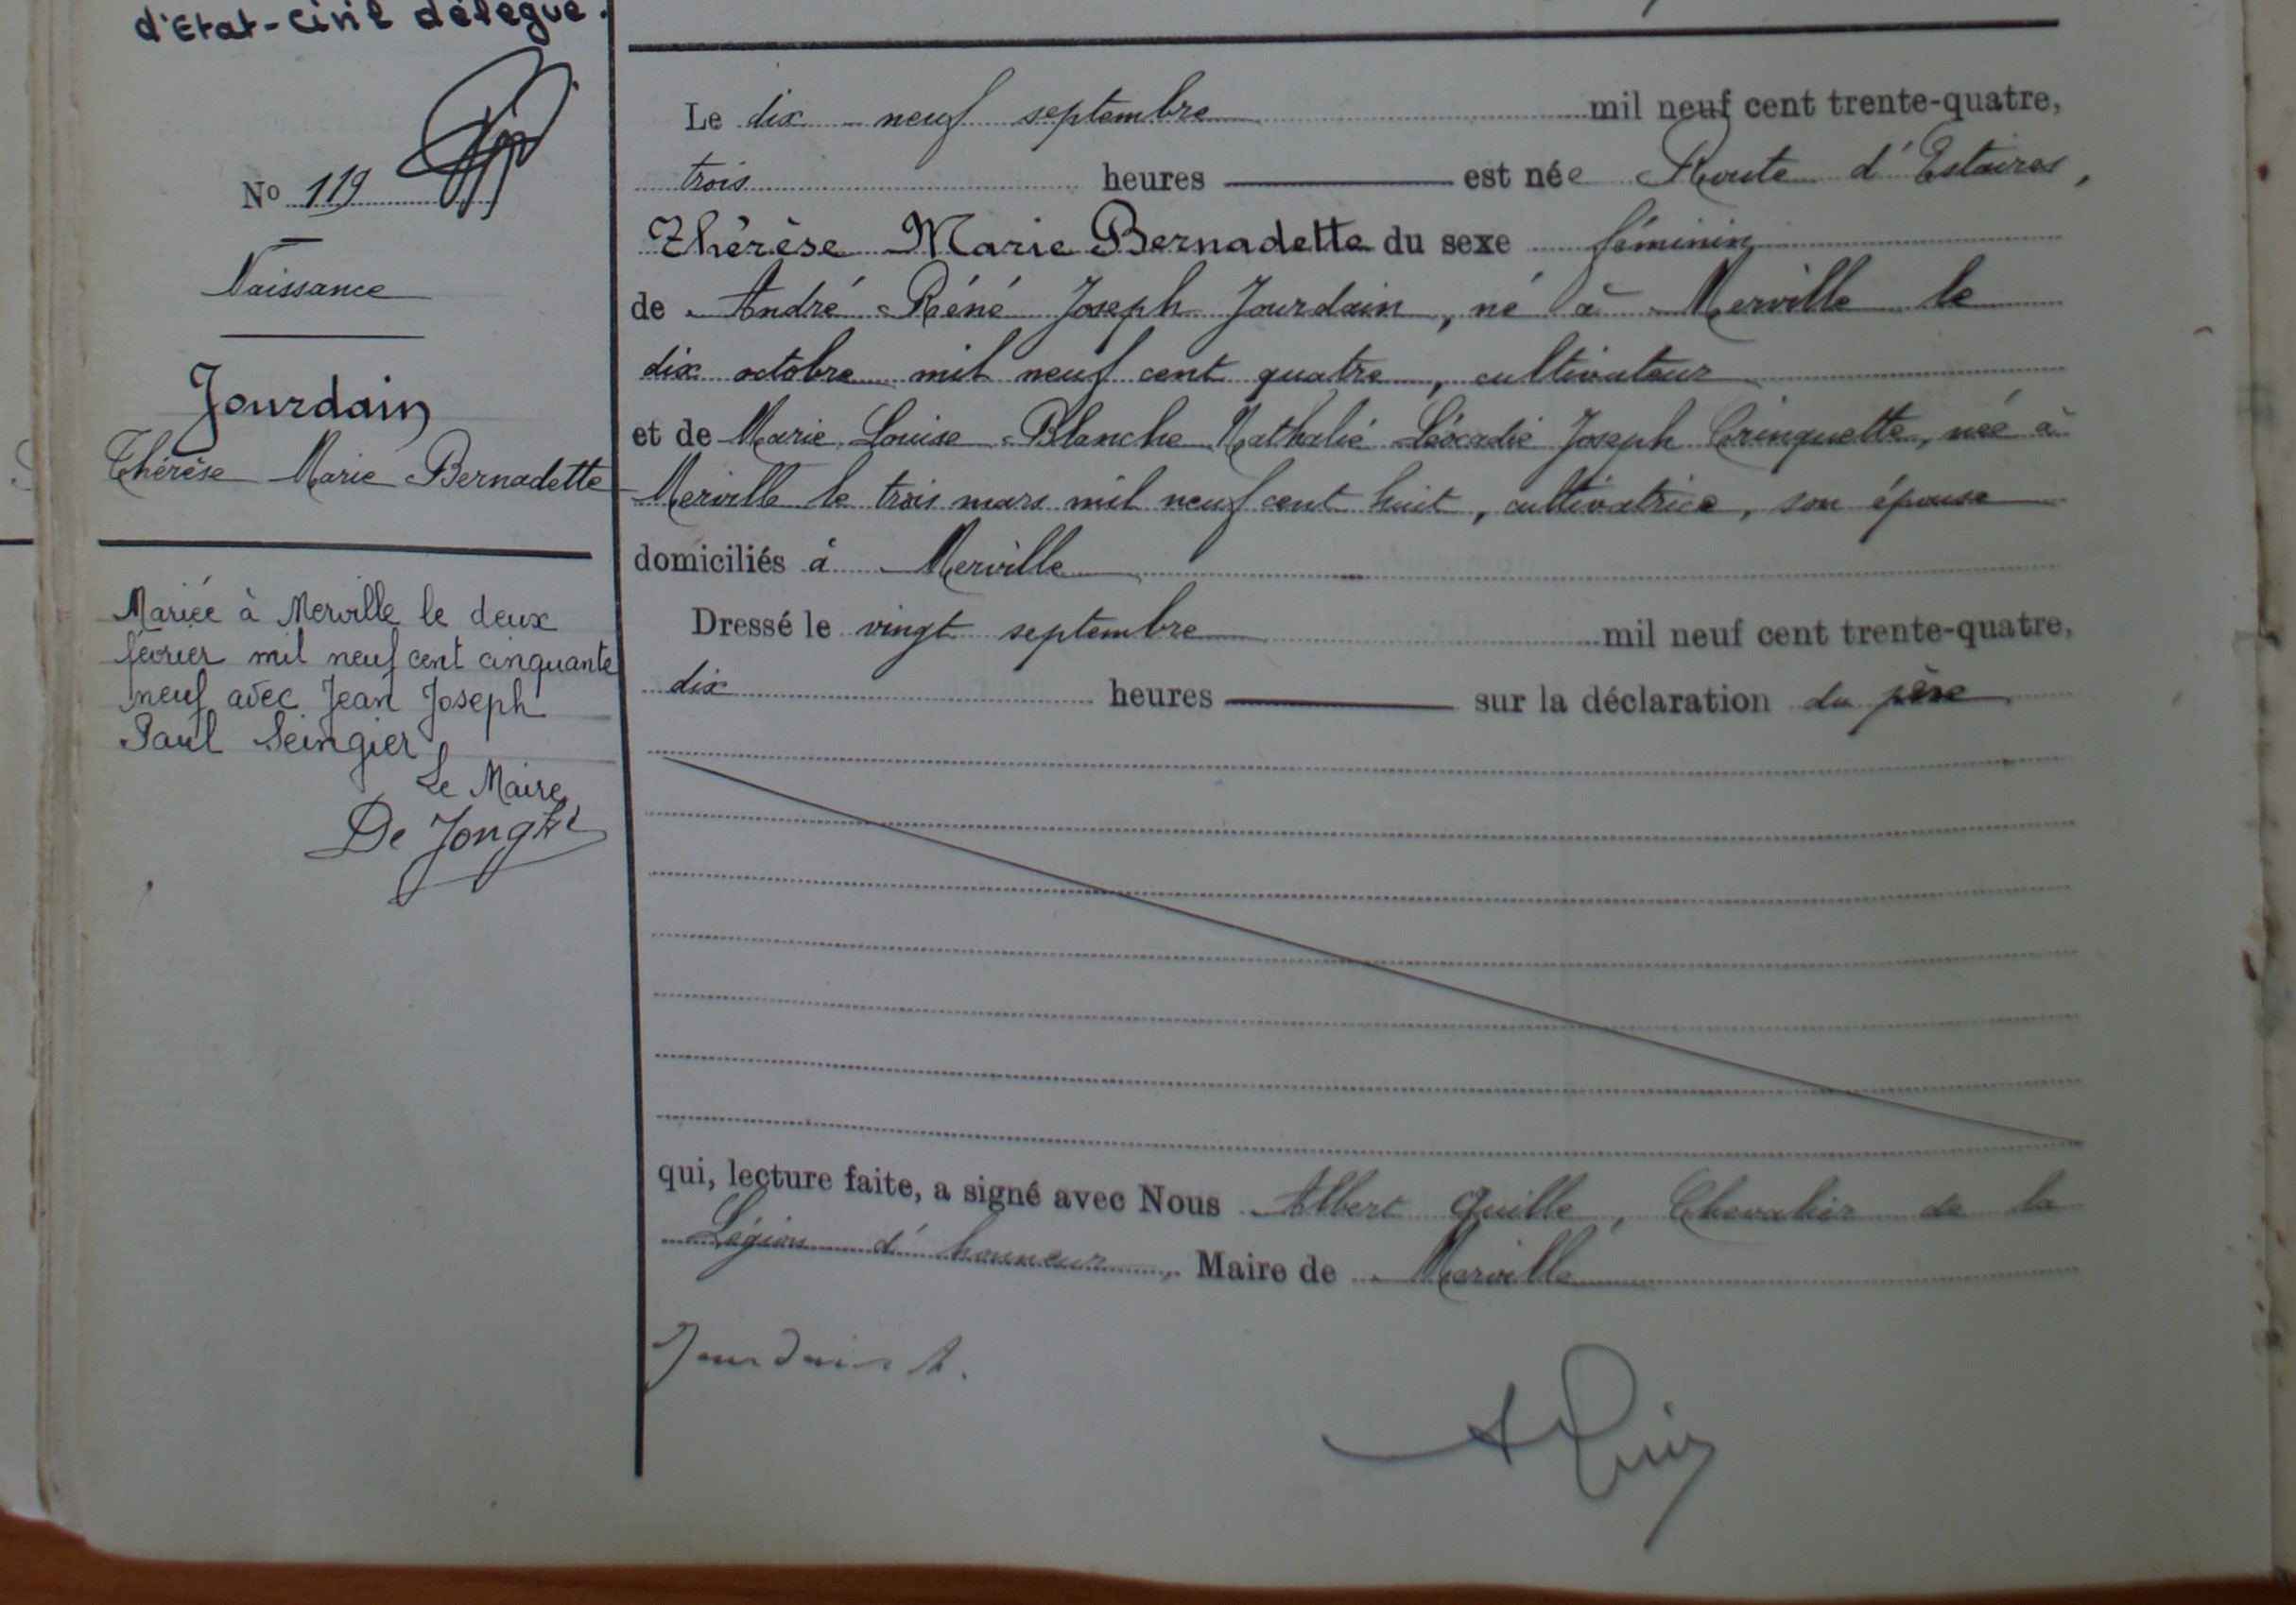 d'Etat-Civil délégué.
No 119
Naissance
Jourdain
Thérèse Marie Bernadette
Mariée à Merville le deux
février mil neuf cent cinquante
neuf avec Jean Joseph
Paul Seingier
Le Maire
De Jonghe
Le dix-neuf septembre mil neuf cent trente-quatre,
trois heures est née Route d'Estaires,
Thérèse Marie Bernadette du sexe féminin
de André Réné Joseph Jourdain, né à Merville le
dix octobre mil neuf cent quatre, cultivateur
et de Marie Louise Blanche Nathalie Léocadie Joseph Crinquette, née à
Merville le trois mars mil neuf cent huit, cultivatrice, son épouse
domiciliés à Merville
Dressé le vingt septembre mil neuf cent trente-quatre,
dix heures sur la déclaration du père
qui, lecture faite, a signé avec Nous Albert Quille, Chevalier de la
Légion d'honneur, Maire de Merville
Jourdain A.